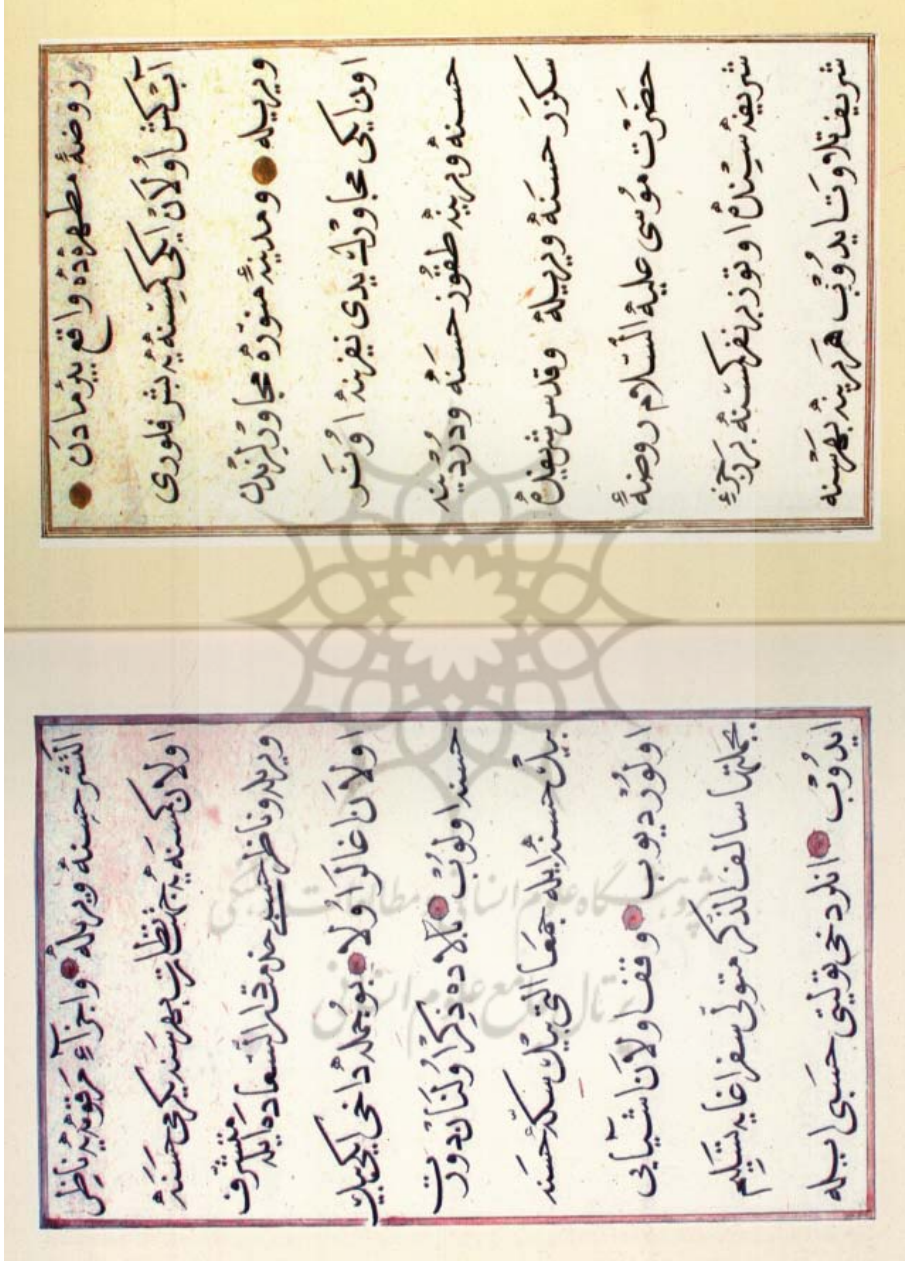 روضهٔ مطهره ده واقع بیرمادن
آبکش اولان ایکی کسنه یه بشر فلوری
ویریله ومدینهٔ منوره مجاورلرندن
اون ایکی مجاورک یدی نفرینه اونر
حسنه وبرینه طقوز حسنه ودردینه
سکزر حسنه ویریله وقدس شریفده
حضرت موسی علیه السلام روضهٔ
شریفه سنده اوتوز نفر کسنه برر جزء
شریف تلاوت ایدوب هر برینه بهر سنه
التشر حسنه ویریله واجزاء مرقومه یه ناظر
اولان کسنه یه جهت نظارت بهر سنه یکرمی حسنه
ویریله وناظر حسبی خدمت دار السعاده ایله متشرف
اولان اغالر اولا بو جمله دخی ایکی بیک
حسنه اولوب بالاده ذکر اولنان درت
بیک حسنه ایله جمعا التی بیک سکز حسنه
اولور دیوب وقف اولان اشیایی
بجملتها سالف الذکر متولی سفر اغایه تسلیم
ایدوب انلر دخی تولیتی حسبی ایله
پژوهشگاه علوم انسانی و مطالعات فرهنگی
پرتال جامع علوم انسانی